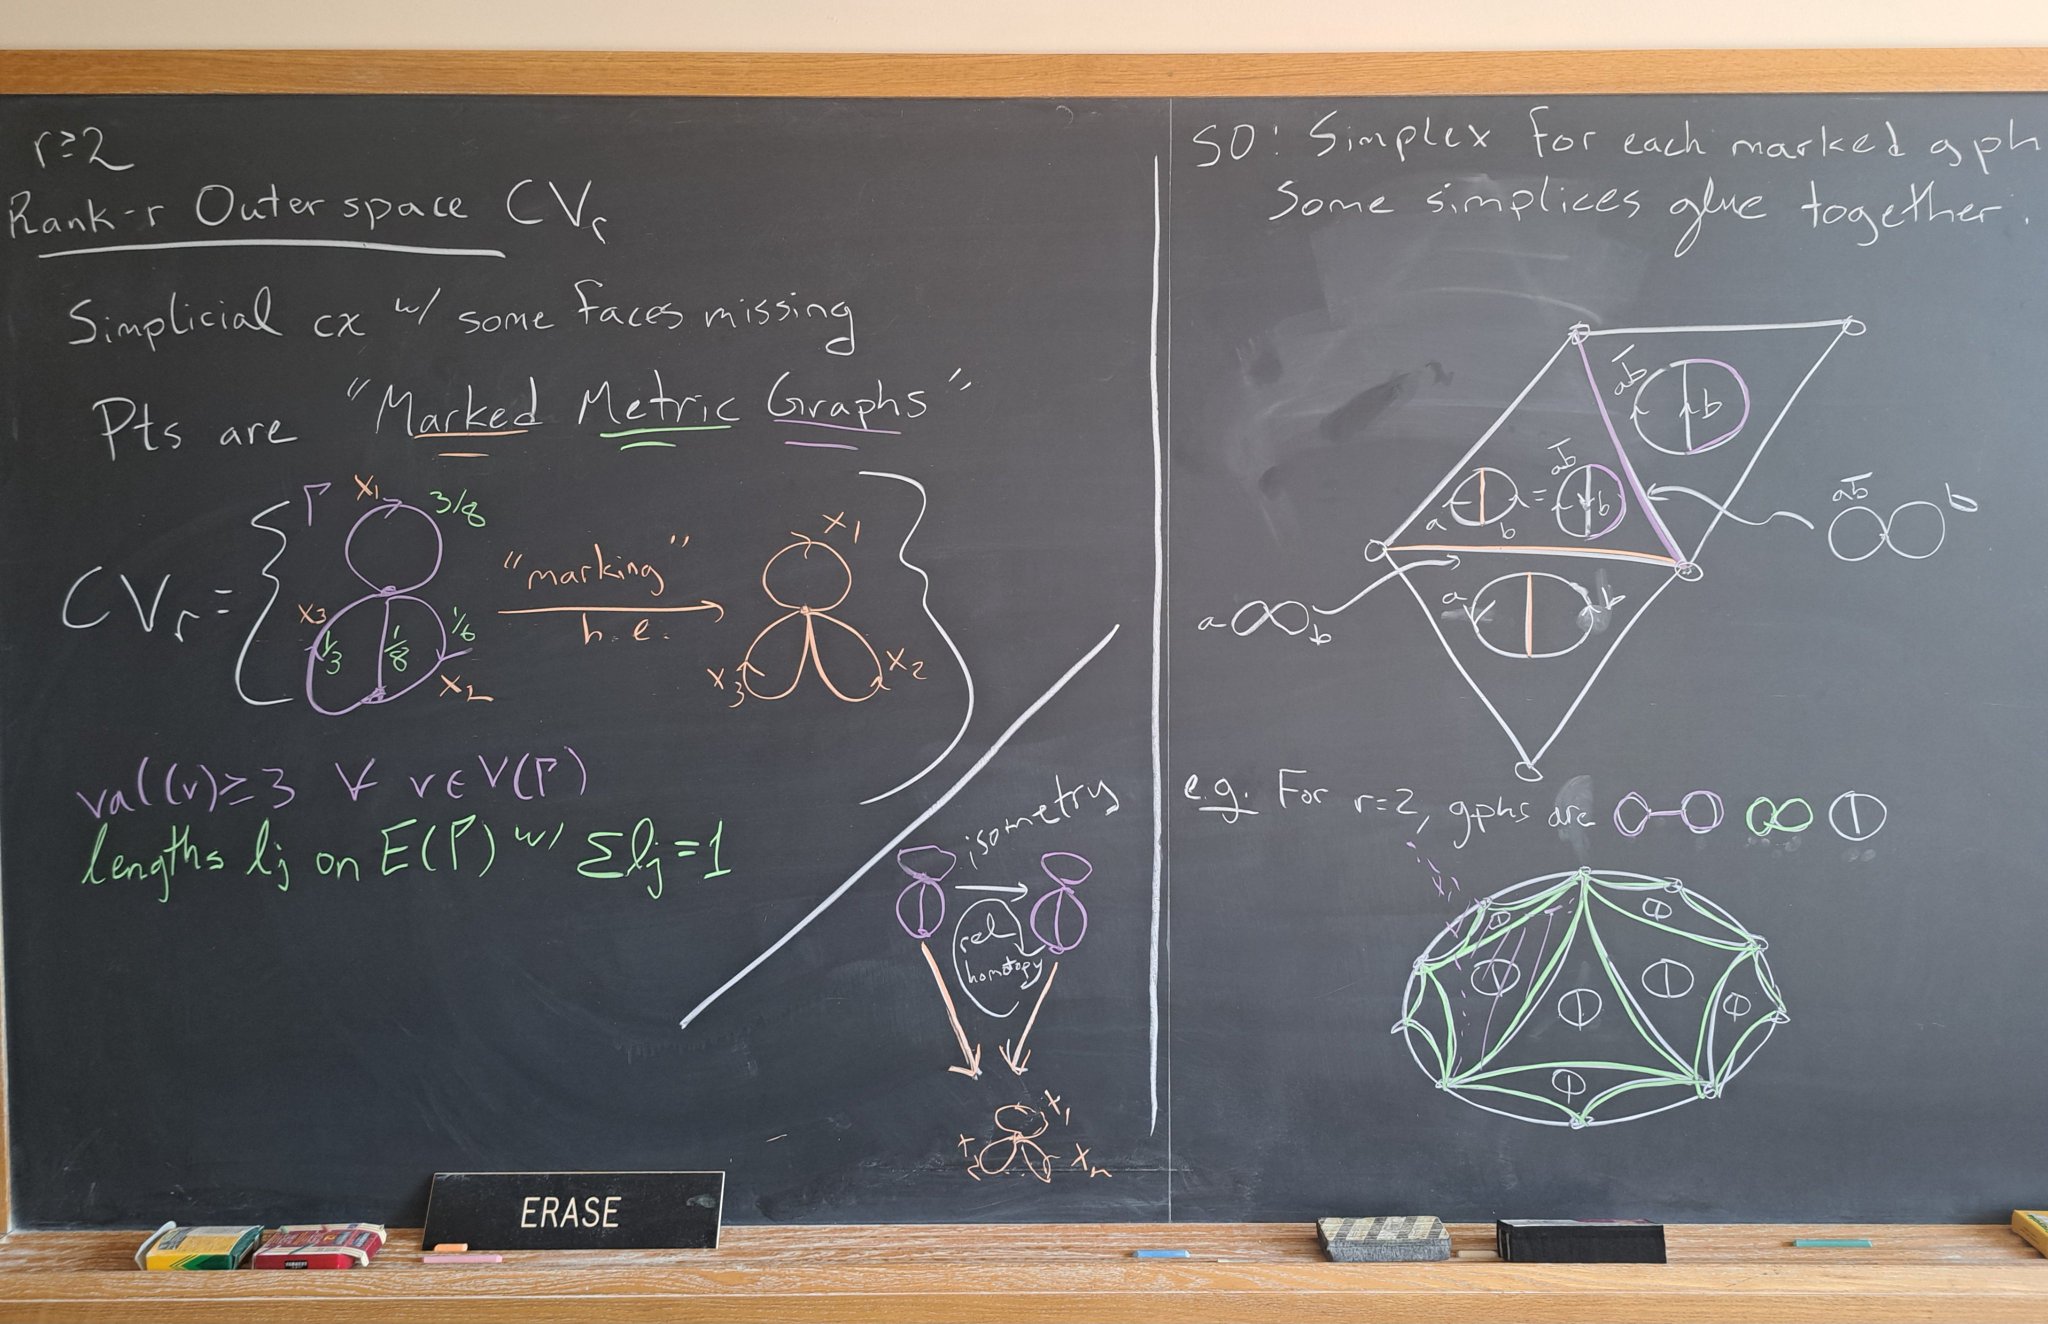 r≥2
Rank-r Outer space CVr
Simplicial cx w/ some faces missing
Pts are "Marked Metric Graphs"
CVr =
Γ
x1
3/8
x3
1/3
1/8
1/6
x2
"marking"
h.e.
x1
x3
x2
val(v)≥3 ∀ v∈V(Γ)
lengths lj on E(Γ) w/ Σlj=1
isometry
rel
homotopy
x1
SO: Simplex for each marked gph
Some simplices glue together.
ab̄
b
ab̄
a
b
=
b
ab̄
b
a
b
a
b
e.g. For r=2, gphs are
ERASE